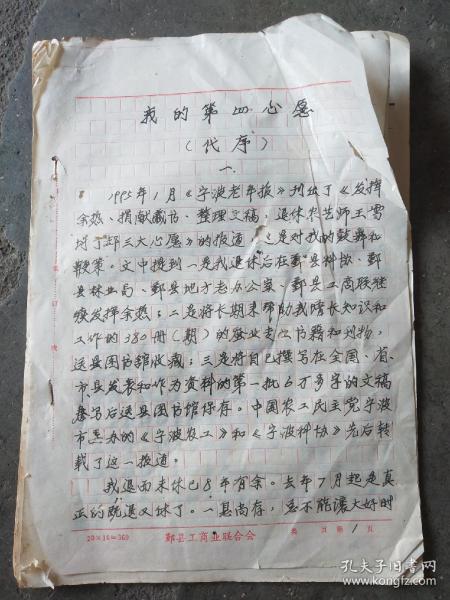 我的第四心愿
（代序）
一.
1995年1月《宁波老年报》刊登了《发挥
余热、捐献藏书、整理文稿，退休农艺师王雪
了却三大心愿》的报道，这是对我的鼓舞和
鞭策。文中提到一是我退休后在鄞县科协、鄞
县林业局、鄞县地方老办公室、鄞县工商联继
续发挥余热；二是将长期来帮助我增长知识和
工作的380册（期）的专业书籍和刊物，
送县图书馆收藏；三是将自己撰写在全国、省、
市、县发表和作为资料的第一批6万多字的文稿
誊写后送县图书馆保存。中国农工民主党宁波
市委办的《宁波农工》和《宁波科协》先后转
载了这一报道。
我退而未休已8年有余。去年7月起是真
正的既退又休了。一息尚存，总不能让大好时
20×18=360
鄞县工商业联合会
类 页 第 1 页
孔夫子旧书网
book.kongfz.com